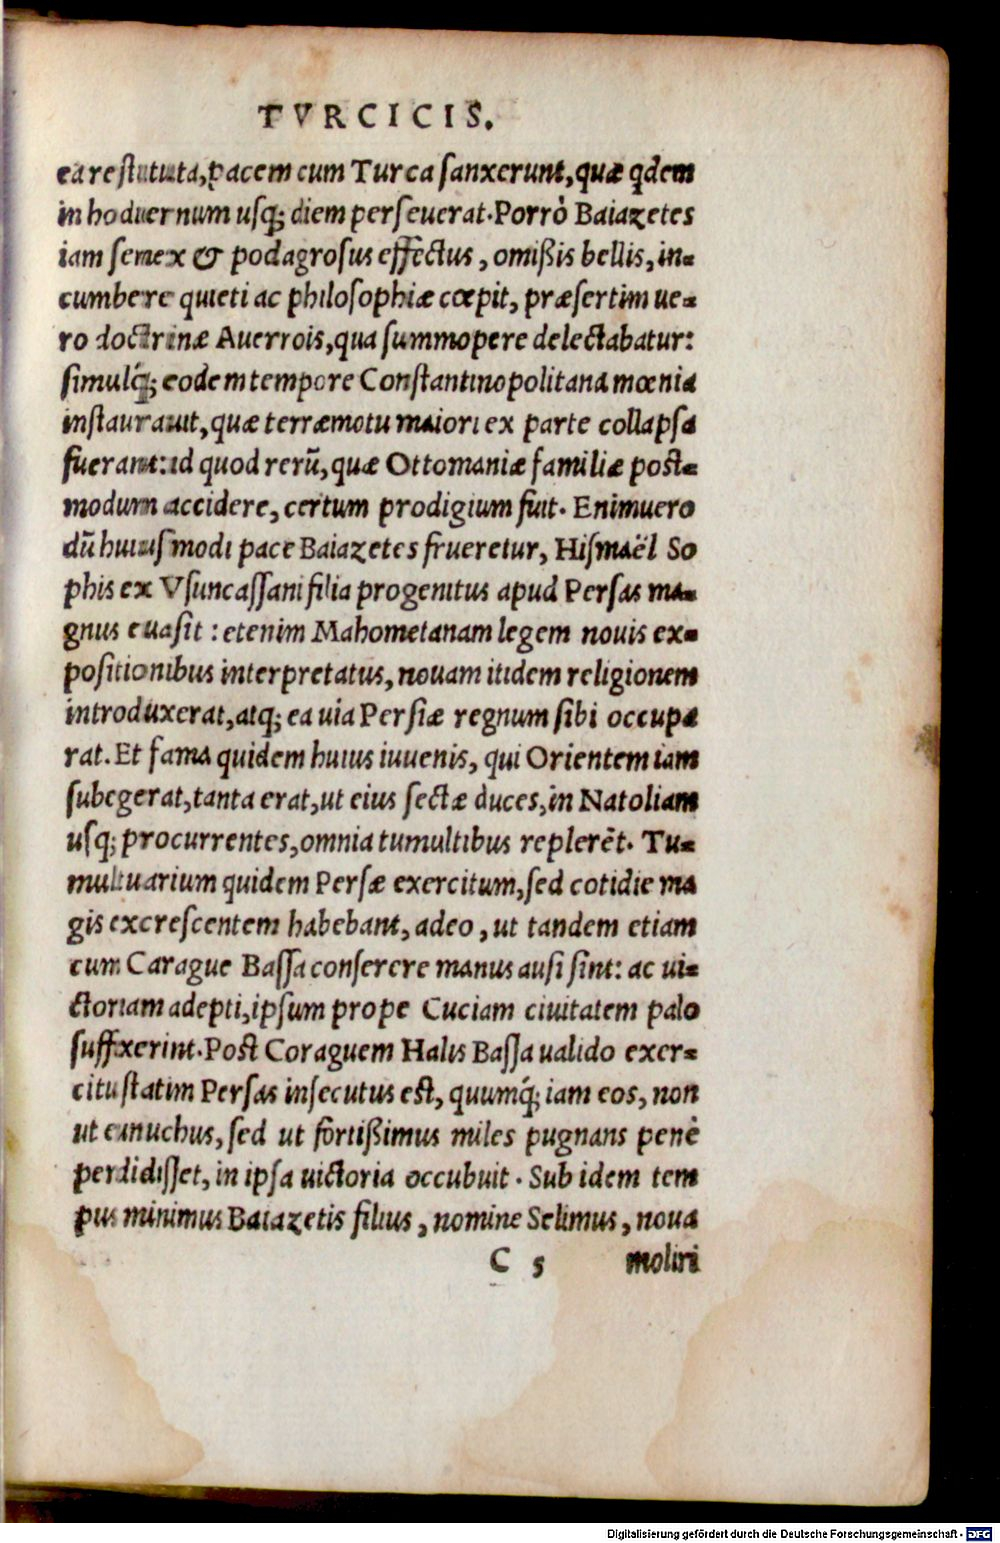 TVRCICIS.
ea restituta, pacem cum Turca sanxerunt, quæ qdem
in hodiernum usq; diem perseuerat. Porrò Baiazetes
iam senex & podagrosus effectus, omißis bellis, in-
cumbere quieti ac philosophiæ cœpit, præsertim ue-
ro doctrinæ Auerrois, qua summopere delectabatur:
simulq́; eodem tempore Constantinopolitana mœnia
instaurauit, quæ terræmotu maiori ex parte collapsa
fuerant: id quod rerũ, quæ Ottomaniæ familiæ post-
modum accidere, certum prodigium fuit. Enimuero
dũ huiusmodi pace Baiazetes frueretur, Hismaël So
phis ex Vsuncassani filia progenitus apud Persas ma-
gnus euasit: etenim Mahometanam legem nouis ex-
positionibus interpretatus, nouam itidem religionem
introduxerat, atq; ea uia Persiæ regnum sibi occupa
rat. Et fama quidem huius iuuenis, qui Orientem iam
subegerat, tanta erat, ut eius sectæ duces, in Natoliam
usq; procurrentes, omnia tumultibus replerēt. Tu-
multuarium quidem Persæ exercitum, sed cotidie ma
gis excrescentem habebant, adeo, ut tandem etiam
cum Carague Bassa conserere manus ausi sint: ac ui-
ctoriam adepti, ipsum prope Cuciam ciuitatem palo
suffixerint. Post Coraguem Halis Bassa ualido exer-
citu statim Persas insecutus est, quumq́; iam eos, non
ut eunuchus, sed ut fortißimus miles pugnans penè
perdidisset, in ipsa uictoria occubuit. Sub idem tem
pus minimus Baiazetis filius, nomine Selimus, noua
C 5 moliri
Digitalisierung gefördert durch die Deutsche Forschungsgemeinschaft - DFG